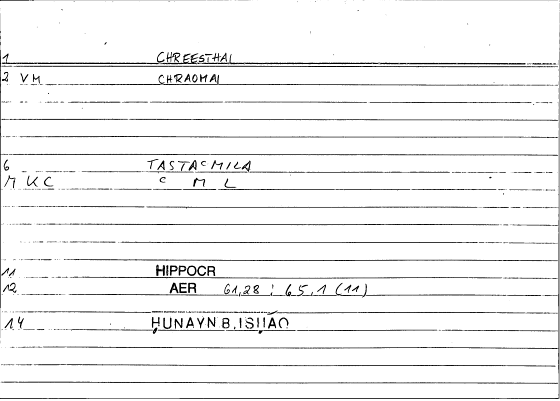 1 CHREESTHAI
2 VM CHRAOMAI
6 TASTAᶜMILA
M KC ᶜ M L
11 HIPPOCR
12 AER 61,28 : 65,1 (11)
14 ḤUNAYN B. ISḤĀQ